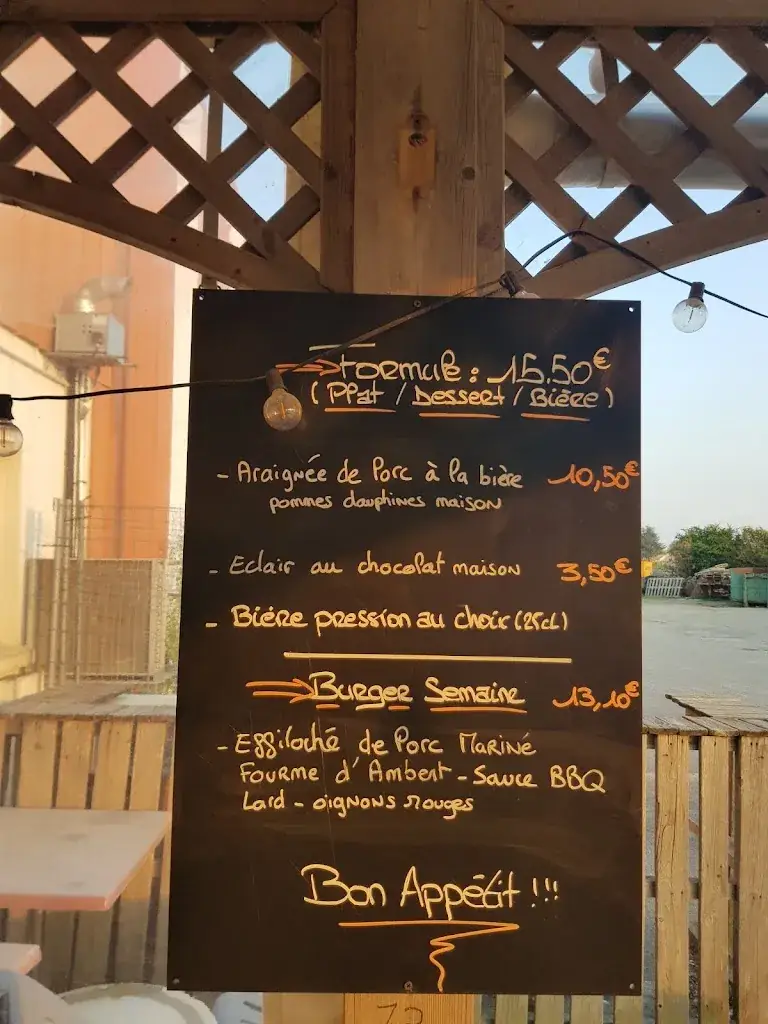 Formule : 15.50€
( Plat / Dessert / Bière )
- Araignée de Porc à la bière 10,50€
pommes dauphines maison
- Eclair au chocolat maison 3,50€
- Bière pression au choix (25cl)
Burger Semaine 13,10€
- Effiloché de Porc Mariné
Fourme d'Ambert - Sauce BBQ
Lard - oignons rouges
Bon Appétit !!!